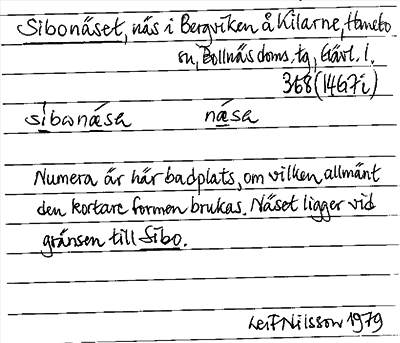 Sibonäset, näs i Bergviken å Kilarne, Hanebo
sn, Bollnäs doms. tg, Gävl. l.
368 (14G7i)
síbonǽsə nǽsə
Numera är här badplats, om vilken allmänt
den kortare formen brukas. Näset ligger vid
gränsen till Sibo.
Leif Nilsson 1979